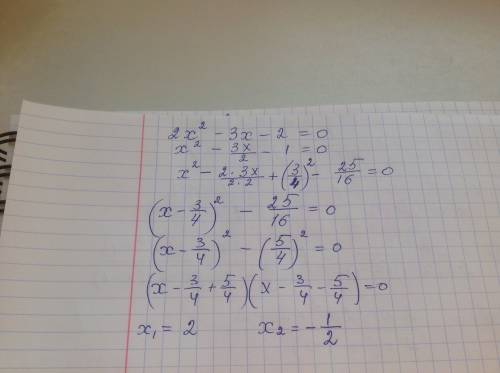 2x² - 3x - 2 = 0
x² - 3x/2 - 1 = 0
x² - 2·3x/2·2 + (3/4)² - 25/16 = 0
(x - 3/4)² - 25/16 = 0
(x - 3/4)² - (5/4)² = 0
(x - 3/4 + 5/4)(x - 3/4 - 5/4) = 0
x₁ = 2 x₂ = -1/2